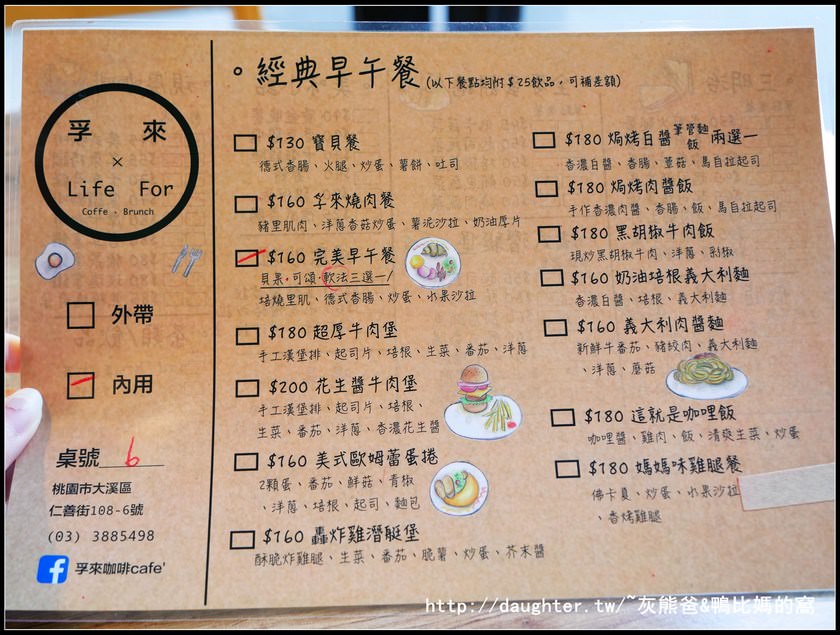 孚 來
×
Life For
Coffe · Brunch
外帶
內用
桌號 6
桃園市大溪區
仁善街108-6號
(03) 3885498
孚來咖啡cafe'
。經典早午餐(以下餐點均附$25飲品，可補差額)
$130 寶貝餐
德式香腸、火腿、炒蛋、薯餅、吐司
$160 孚來燒肉餐
豬里肌肉、洋蔥香菇炒蛋、薯泥沙拉、奶油厚片
$160 完美早午餐
貝果·可頌·軟法三選一/
培燒里肌、德式香腸、炒蛋、水果沙拉
$180 超厚牛肉堡
手工漢堡排、起司片、培根、生菜、番茄、洋蔥
$200 花生醬牛肉堡
手工漢堡排、起司片、培根、
生菜、番茄、洋蔥、香濃花生醬
$160 美式歐姆蕾蛋捲
2顆蛋、番茄、鮮菇、青椒
、洋蔥、培根、起司、麵包
$160 轟炸雞潛艇堡
酥脆炸雞腿、生菜、番茄、脆薯、炒蛋、芥末醬
$180 焗烤白醬筆管麵飯 兩選一
香濃白醬、香腸、蕈菇、馬自拉起司
$180 焗烤肉醬飯
手作香濃肉醬、香腸、飯、馬自拉起司
$180 黑胡椒牛肉飯
現炒黑胡椒牛肉、洋蔥、剝椒
$160 奶油培根義大利麵
香濃白醬、培根、義大利麵
$160 義大利肉醬麵
新鮮牛番茄、豬絞肉、義大利麵
、洋蔥、蘑菇
$180 這就是咖哩飯
咖哩醬、雞肉、飯、清爽生菜、炒蛋
$180 媽媽味雞腿餐
佛卡夏、炒蛋、水果沙拉
、香烤雞腿
http://daughter.tw/~灰熊爸&鴨比媽的窩